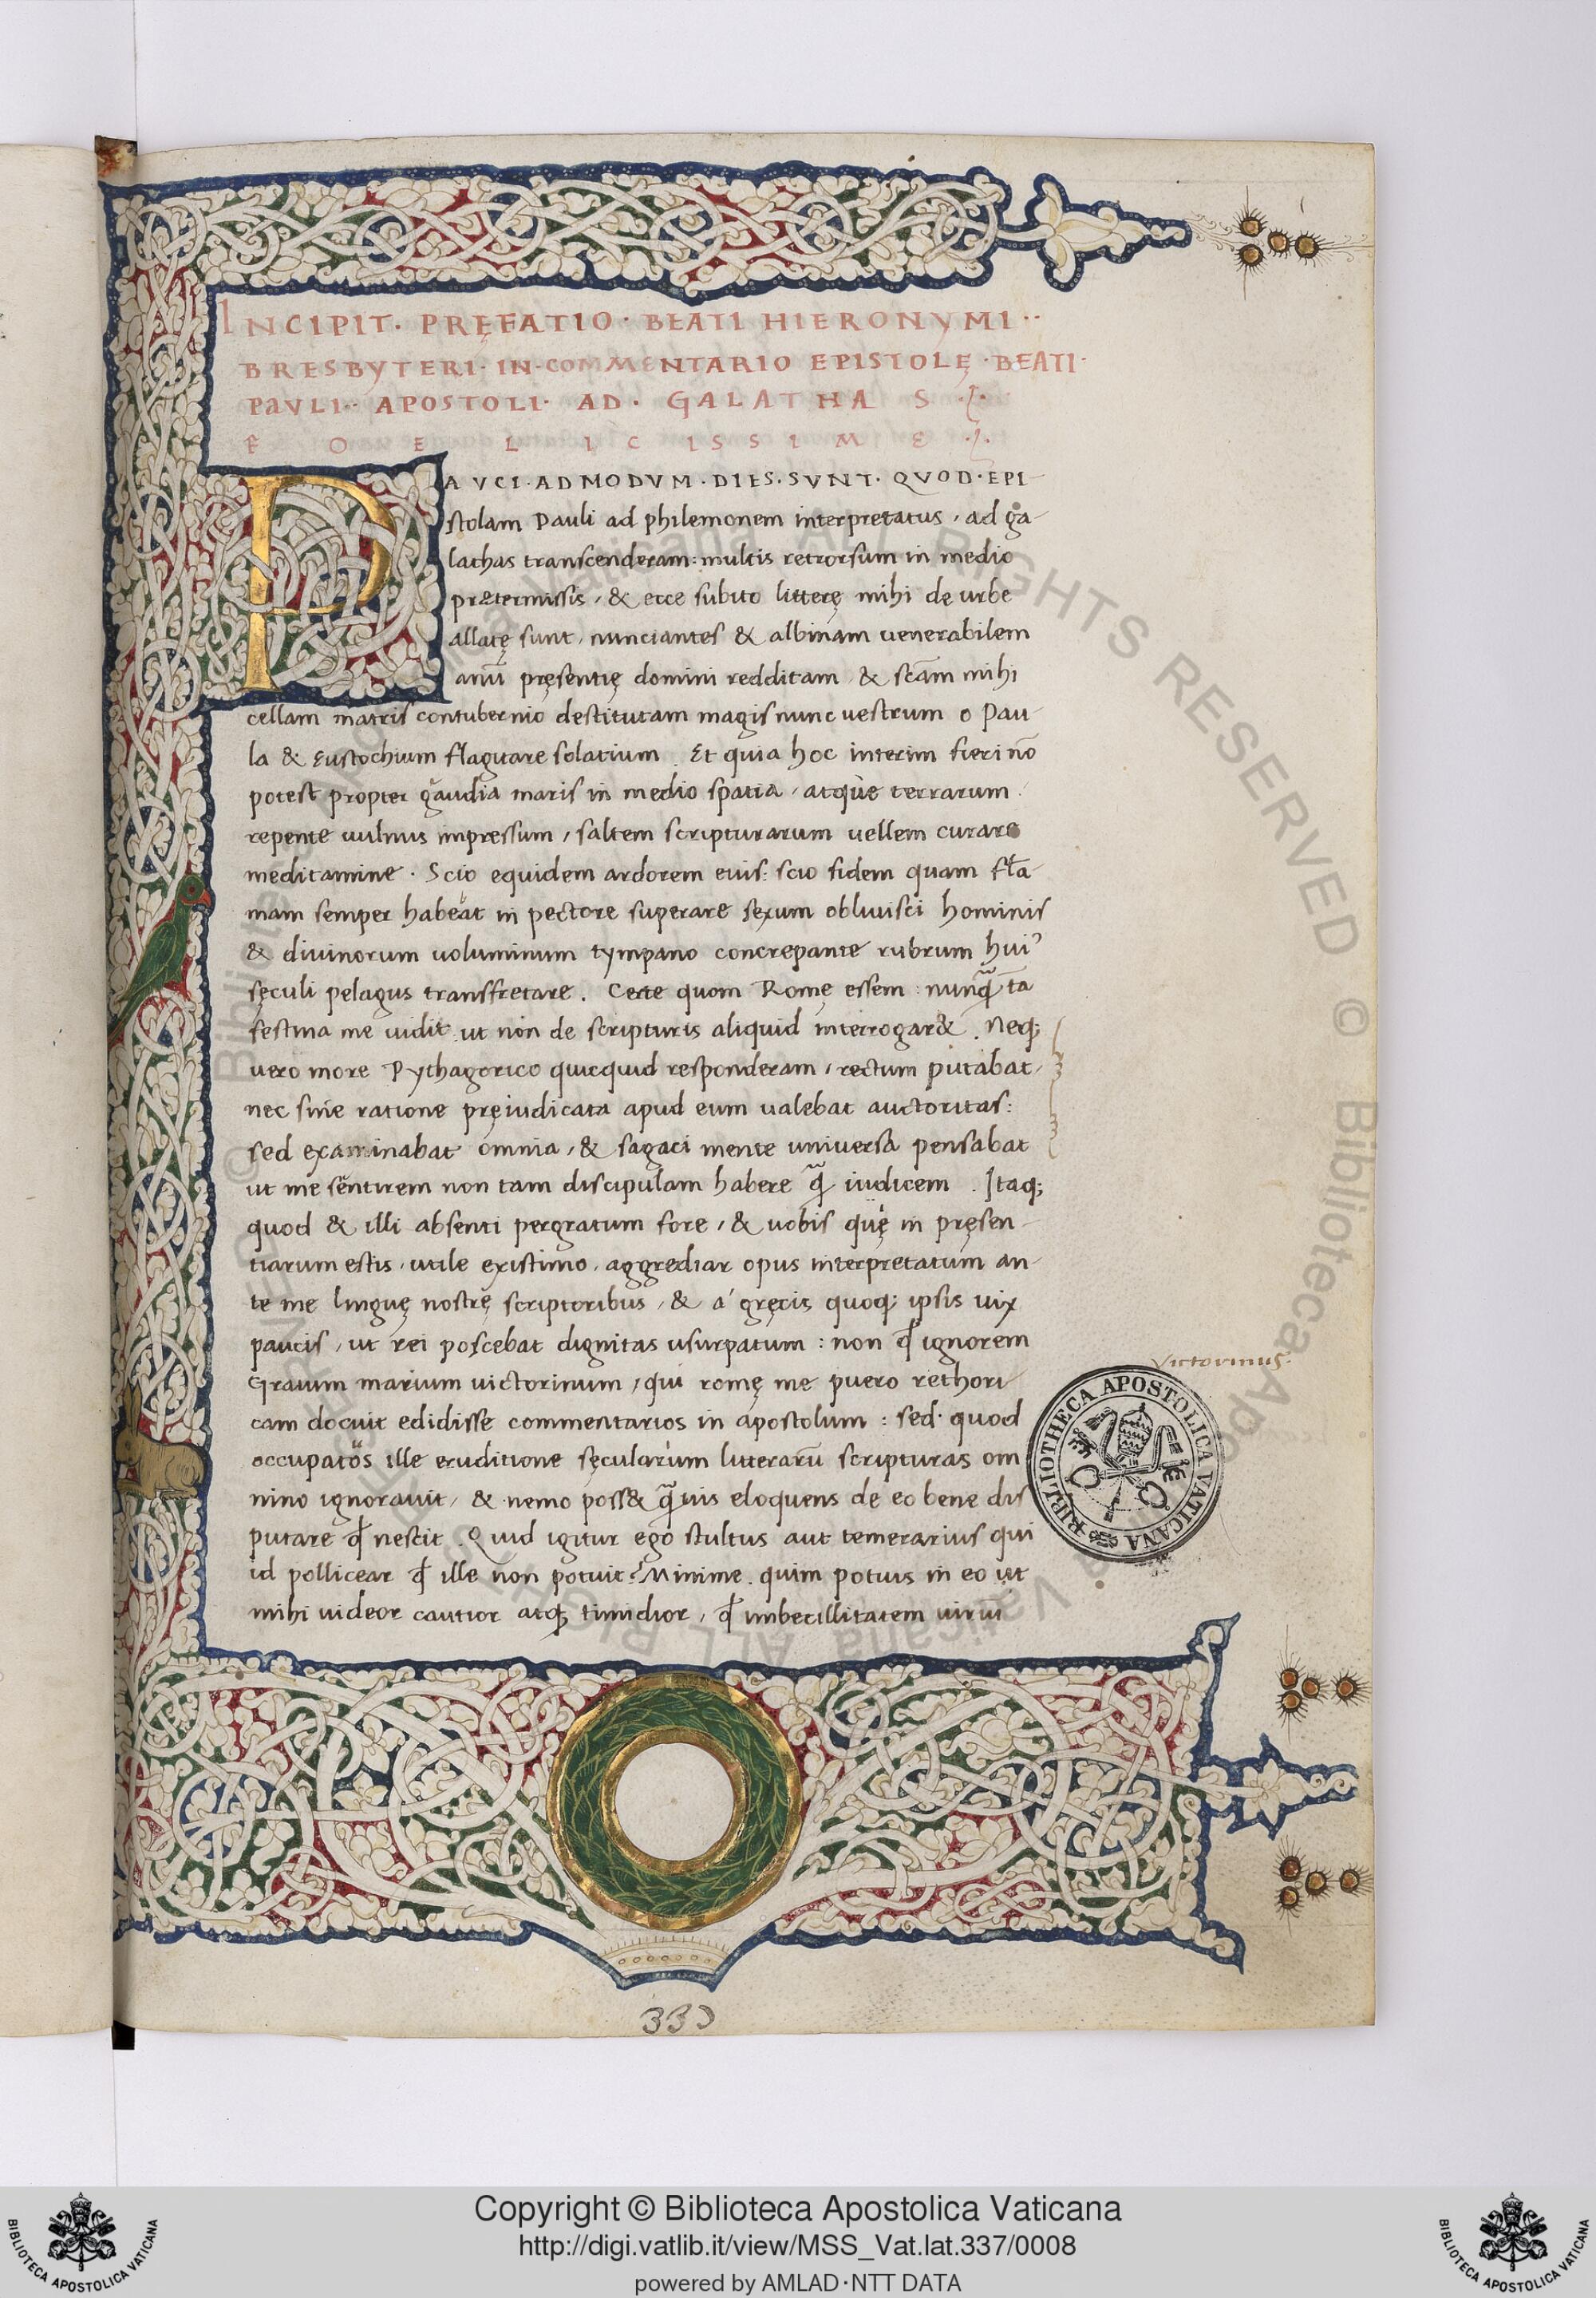 INCIPIT· PRĘFATIO· BEATI HIERONYMI··
BRESBYTERI· IN·COMMENTARIO EPISTOLĘ·BEATI·
PAVLI·· APOSTOLI· AD· GALATHAS
FOELICISSIME
PAVCI·ADMODVM·DIES·SVNT· QVOD·EPI-
stolam Pauli ad philemonem interpretatus, ad ga-
lathas transcenderam: multis retrorsum in medio
prætermissis, & ecce subito litterę mihi dę urbe
allatę sunt, nunciantes & albinam uenerabilem
anū pręsentię domini redditam & scām mihi
cellam matris contubernio destitutam magis nunc uestrum o Pau-
la & Eustochium flagitare solatium. Et quia hoc interim fieri nō
potest propter gaudia maris in medio spatia, atque terrarum
repente uulnus impressum, saltem scripturarum uellem curare
meditamine. Scio equidem ardorem eius: scio fidem quam flā-
mam semper habeat in pectore superare sexum obliuisci hominis
& diuinorum uoluminum tympano concrepante rubrum huiꝰ
sęculi pelagus transfretare. Certe quom Romę essem: nunq̄ tā
festina me uidit ut non de scripturis aliquid interrogar&. Neq;
uero more Pythagorico quicquid responderam, rectum putabat,
nec sine ratione pręiudicata apud eum ualebat auctoritas:
sed examinabat omnia, & sagaci mente uniuersa pensabat
ut me sentirem non tam discipulam habere q̄ iudicem. Itaq;
quod & illi absenti pergratum fore, & uobis quę in pręsen-
tiarum estis, utile existimo, aggrediar opus interpretatum an-
te me linguę nostrę scriptoribus, & á gręcis quoq; ipsis uix
paucis, ut rei poscebat dignitas usurpatum: non ꝙ ignorem
Graium marium uictorinum, qui romę me puero rethori-
cam docuit edidisse commentarios in apostolum: sed quod
occupatus ille eruditione sęcularium litterarū scripturas om
nino ignorauit, & nemo poss& q̄uis eloquens de eo bene dis
putare ꝙ nescit. Quid igitur ego stultus aut temerarius qui
id pollicear ꝙ ille non potuit? Minime. quim potius in eo ut
mihi uideor cautior atq; timidior, ꝙ imbecillitatem uiriu
Victorinus·
BIBLIOTHECA APOSTOLICA VATICANA
© Biblioteca Apostolica Vaticana ALL RIGHTS RESERVED
Copyright © Biblioteca Apostolica Vaticana
http://digi.vatlib.it/view/MSS_Vat.lat.337/0008
powered by AMLAD·NTT DATA
BIBLIOTECA APOSTOLICA VATICANA
BIBLIOTECA APOSTOLICA VATICANA